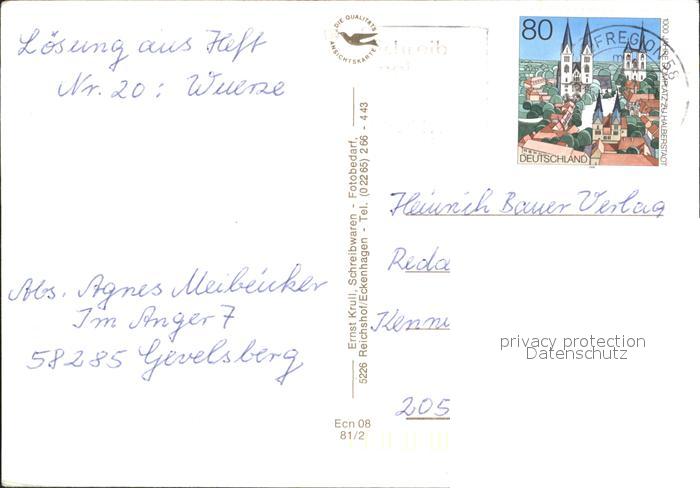 Lösung aus Heft
Nr. 20: Wuerze
Abs. Agnes Meibeicker
Im Anger 7
58285 Gevelsberg
DIE QUALITÄTS
ANSICHTSKARTE
Ernst Krull, Schreibwaren - Fotobedarf,
5226 Reichshof/Eckenhagen - Tel. (02265) 266 - 443
Ecn 08
81/2
80
DEUTSCHLAND
1000 JAHRE DOMPLATZ ZU HALBERSTADT
FREGION 58
Heinrich Bauer Verlag
Reda
Kenn
205
privacy protection
Datenschutz